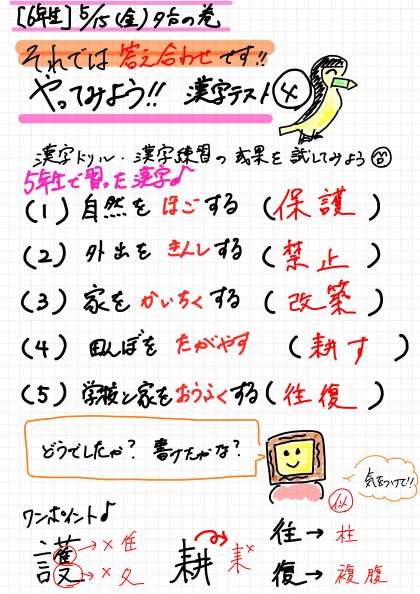 [6年生] 5/15(金)夕方の巻
それでは答え合わせです!!
やってみよう!! 漢字テスト④
漢字ドリル・漢字練習の成果を試してみよう
5年生で習った漢字♪
(1) 自然をほごする (保護)
(2) 外出をきんしする (禁止)
(3) 家をかいちくする (改築)
(4) 田んぼをたがやす (耕す)
(5) 学校と家をおうふくする (往復)
どうでしたか? 書けたかな?
気をつけて!!
ワンポイント♪
似
護→×隹
→×又
耕
往→柱
復→複腹